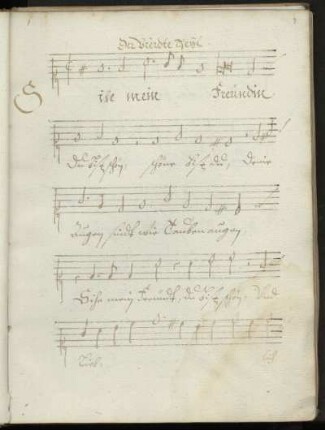 Der Vierdte Theil
Sihe mein Freundin
Du bist schön, schöne bist du, Deine
augen sindt wie Taubenaugen
Sihe mein Freundt, du bist schön. Und